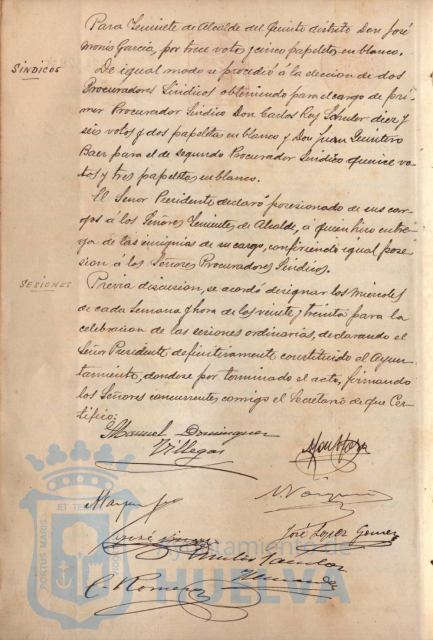 Para Teniente de Alcalde del Quinto distrito Don José
Monis García, por trece votos y cinco papeletas en blanco.
SÍNDICOS
De igual modo se procedió á la eleccion de dos
Procuradores Síndicos obteniendo para el cargo de pri-
mer Procurador Síndico Don Carlos Rey Schuler diez y
seis votos y dos papeletas en blanco y Don Juan Quintero
Baez para el de segundo Procurador Síndico quince vo-
tos y tres papeletas en blanco.
El Señor Presidente declaró posesionado de sus car-
gos á los Señores Tenientes de Alcalde, á quien hizo entre-
ga de las insignias de su cargo, confiriendo igual pose-
sion á los Señores Procuradores Síndicos.
SESIONES
Previa discusion, se acordó designar los Miercoles
de cada semana y hora de las veinte y treinta para la
celebracion de las sesiones ordinarias, declarando el
Señor Presidente definitivamente constituido el Ayun-
tamiento, dandose por terminado el acto, firmando
los Señores concurrentes, conmigo el Secretario de que Cer-
tifico:
Manuel Dominguez
Villegas
José Lopez Gomez
C. Romero
Ayuntamiento de
HUELVA
PORTUS MARIS